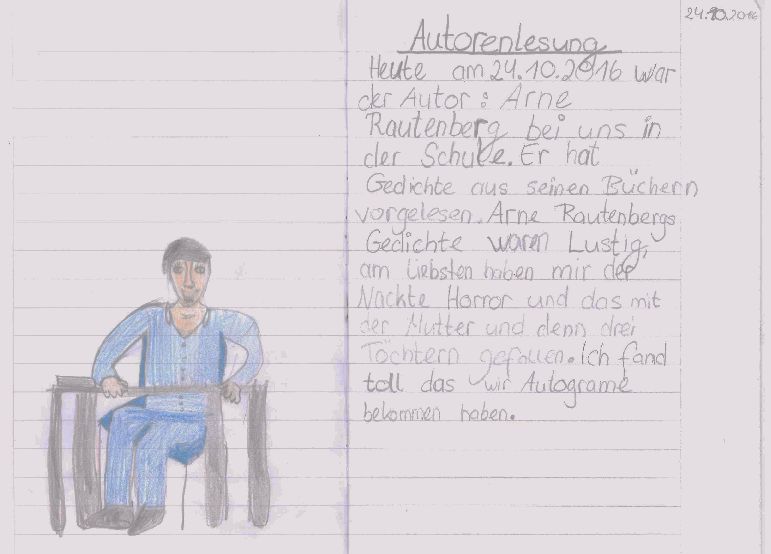 24.10.2016
Autorenlesung
Heute am 24.10.2016 war
der Autor: Arne
Rautenberg bei uns in
der Schule. Er hat
Gedichte aus seinen Büchern
vorgelesen. Arne Rautenbergs
Gedichte waren Lustig,
am liebsten haben mir der
Nackte Horror und das mit
der Mutter und denn drei
Töchtern gefallen. Ich fand
toll das wir Autograme
bekommen haben.